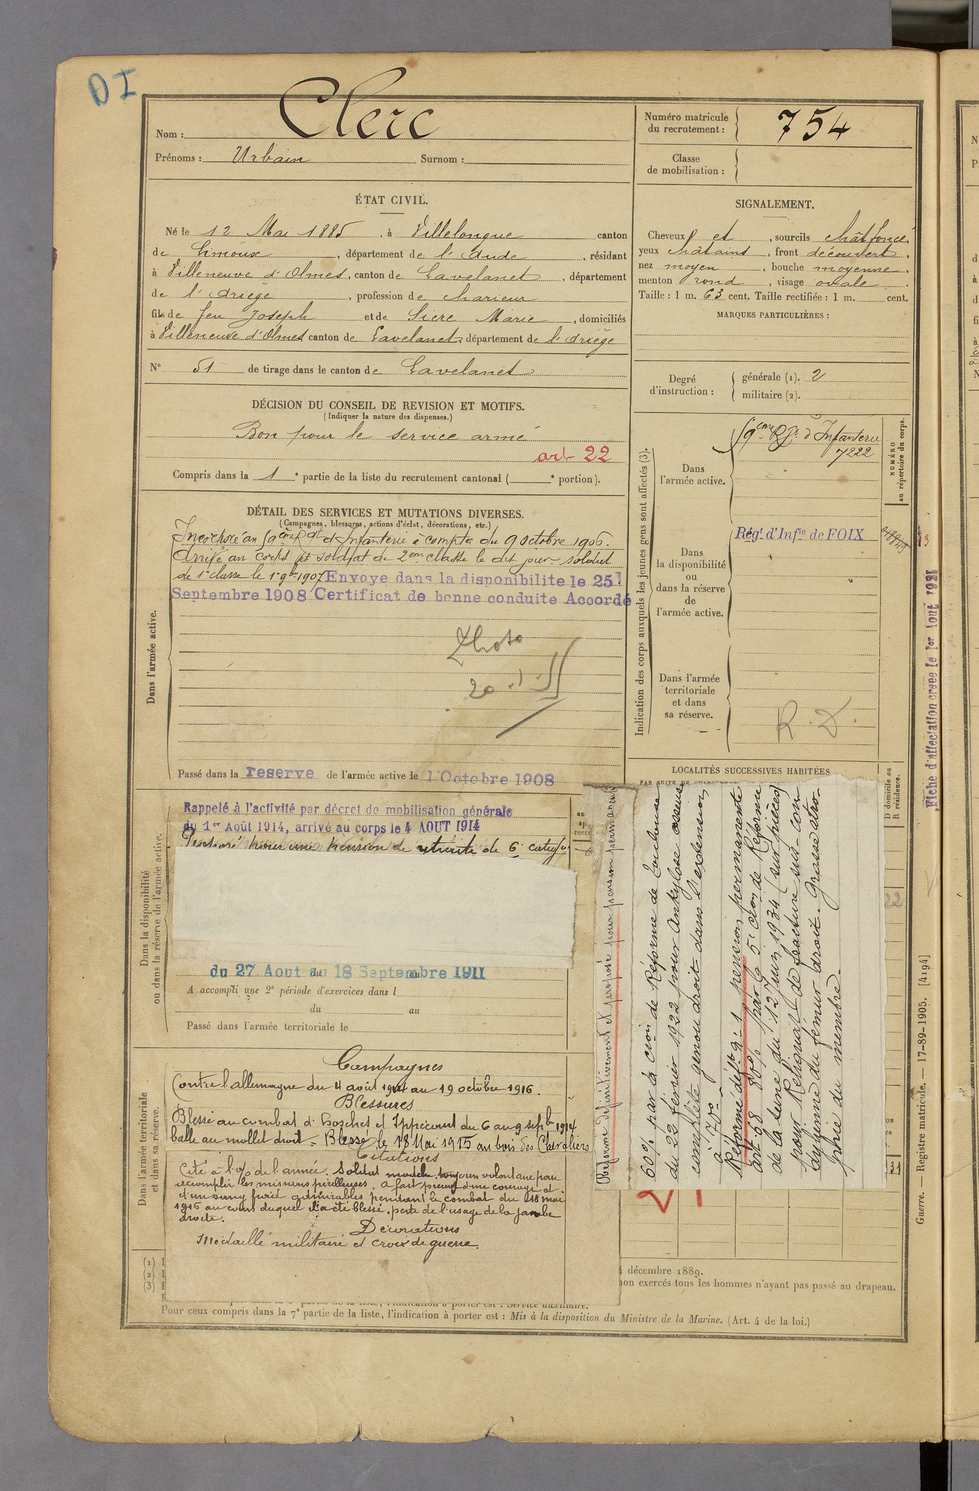 D I
Nom : Clerc
Prénoms : Urbain Surnom :
Numéro matricule du recrutement : 754
Classe de mobilisation :
ÉTAT CIVIL.
Né le 12 Mai 1885, à Villelongue canton
de Limoux, département de l'Aude, résidant
à Villeneuve d'Olmes, canton de Lavelanet, département
de l'Ariège, profession de
fils de feu Joseph et de Sicre Marie, domiciliés
à Villeneuve d'Olmes canton de Lavelanet, département de l'Ariège
N° 51 de tirage dans le canton de Lavelanet
SIGNALEMENT.
Cheveux et, sourcils chât foncé,
yeux châtains, front découvert,
nez moyen, bouche moyenne,
menton rond, visage ovale.
Taille : 1 m. 63 cent. Taille rectifiée : 1 m. cent.
MARQUES PARTICULIÈRES :
Degré d'instruction : générale (1). 2
militaire (2).
DÉCISION DU CONSEIL DE REVISION ET MOTIFS.
(Indiquer la nature des dispenses.)
Bon pour le service armé
art 22
Compris dans la 1e partie de la liste du recrutement cantonal ( e portion).
DÉTAIL DES SERVICES ET MUTATIONS DIVERSES.
(Campagnes, blessures, actions d'éclat, décorations, etc.)
Dans l'armée active.
Incorporé au 59ème Rgt d'Infanterie à compter du 9 octobre 1906.
Arrivé au corps et soldat de 2eme classe le dit jour soldat
de 1e classe le 1er 9bre 1907. Envoye dans la disponibilite le 25
Septembre 1908 Certificat de bonne conduite Accordé
Photo
Passé dans la reserve de l'armée active le 1 Octobre 1908
Indication des corps auxquels les jeunes gens sont affectés (3).
Dans l'armée active.
59ème Rgt d'Infanterie
7222
NUMÉRO au répertoire du corps.
Dans la disponibilité ou dans la réserve de l'armée active.
Régt d'Infie de FOIX
Dans l'armée territoriale et dans sa réserve.
R. D.
LOCALITÉS SUCCESSIVES HABITÉES
D domicile ou R résidence.
Fiche d'affectation creee le 1er Aout 1921
Dans la disponibilité ou dans la réserve de l'armée active.
Rappelé à l'activité par décret de mobilisation générale
du 1er Août 1914, arrivé au corps le 4 AOUT 1914
Proposé pour une pension de retraite de 6e catégie
du 27 Aout au 18 Septembre 1911
A accompli une 2e période d'exercices dans l
du au
Passé dans l'armée territoriale le
Dans l'armée territoriale et dans sa réserve.
Campagnes
Contre l'allemagne du 4 août 1914 au 19 octobre 1916.
Blessures
Blessé au combat d' et Eppecourt du 6 au 9 septb 1914
balle au mollet droit. Blessé le 18 Mai 1915 au bois des Chevaliers
Citations
Cité à l'o/ de l'armée. Soldat modèle toujours volontaire pour
accomplir les missions périlleuses. a fait preuve d'un courage et
d'un sang froid admirables pendant le combat du 18 mai
1915 au cours duquel il a été blessé. perte de l'usage de la jambe
droite.
Décorations
Médaille militaire et croix de guerre.
Réformé définitivement et proposé pour pension permanente
60% par la cion de Réforme de Toulouse
du 22 février 1922 pour ankylose osseuse
complète genou droit dans l'extension
à 170°.
Réformé déf n° 1, pension permanente
art 68 80% par la 5e cion de Réforme
de la Seine du 12 Juin 1934 (sur pièces)
pour Reliquat de fracture sus-con-
dylienne du fémur droit. Grosse atro-
phie du membre.
décembre 1889.
non exercés tous les hommes n'ayant pas passé au drapeau.
Pour ceux compris dans la 7e partie de la liste, l'indication à porter est : Mis à la disposition du Ministre de la Marine. (Art. 4 de la loi.)
Guerre. — Registre matricule. — 17-89-1905. [4194]